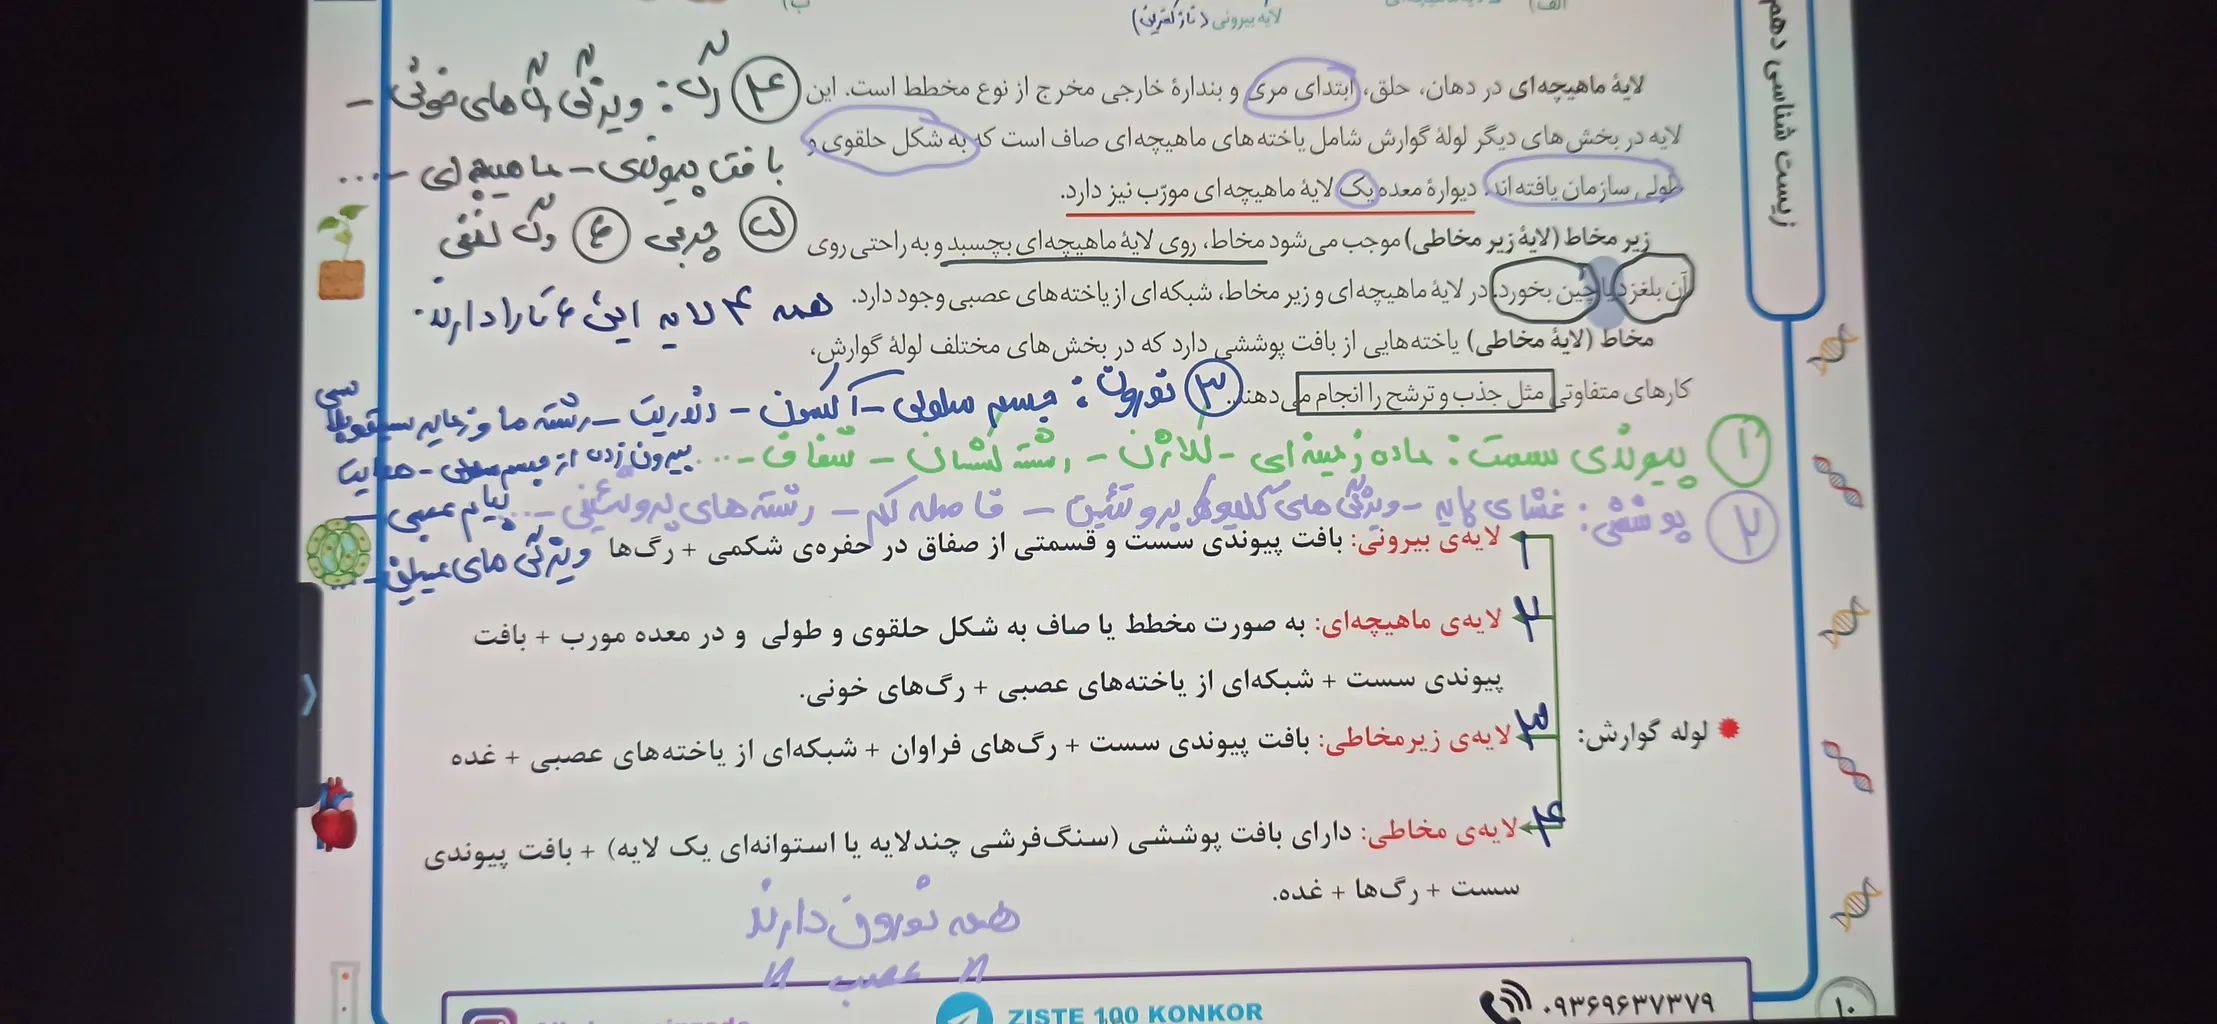 زیست شناسی دهم
الف)
ب)
لایه بیرونی (نازکترین)
لایهٔ ماهیچه‌ای در دهان، حلق، ابتدای مری و بندارهٔ خارجی مخرج از نوع مخطط است. این
لایه در بخش‌های دیگر لولهٔ گوارش شامل یاخته‌های ماهیچه‌ای صاف است که به شکل حلقوی و
طولی سازمان یافته‌اند. دیوارهٔ معده یک لایهٔ ماهیچه‌ای مورّب نیز دارد.
زیر مخاط (لایهٔ زیر مخاطی) موجب می‌شود مخاط، روی لایهٔ ماهیچه‌ای بچسبد و به راحتی روی
آن بلغزد یا چین بخورد. در لایهٔ ماهیچه‌ای و زیر مخاط، شبکه‌ای از یاخته‌های عصبی وجود دارد.
مخاط (لایهٔ مخاطی) یاخته‌هایی از بافت پوششی دارد که در بخش‌های مختلف لولهٔ گوارش،
کارهای متفاوتی مثل جذب و ترشح را انجام می‌دهند.
۴ رگ: ویژگی رگ های خونی -
بافت پیوندی - ماهیچه ای - ...
۵ چربی ۶ رگ لنفی
همه ۴ لایه این ۶ تا را دارند.
۳ نورون: جسم سلولی - آکسون - دندریت - رشته ها و زواید سیتوپلاسمی
بیرون زده از جسم سلولی - هدایت
پیام عصبی -
ویژگی های میلین - ...
۱ پیوندی سست: ماده زمینه ای - کلاژن - رشته کشسان - شفاف - ...
۲ پوششی: غشای پایه - ویژگی های گلیکوپروتئین - فاصله کم - رشته های پروتئینی - ...
۱ لایه‌ی بیرونی: بافت پیوندی سست و قسمتی از صفاق در حفره‌ی شکمی + رگ‌ها
۲ لایه‌ی ماهیچه‌ای: به صورت مخطط یا صاف به شکل حلقوی و طولی و در معده مورب + بافت
پیوندی سست + شبکه‌ای از یاخته‌های عصبی + رگ‌های خونی.
لوله گوارش:
۳ لایه‌ی زیرمخاطی: بافت پیوندی سست + رگ‌های فراوان + شبکه‌ای از یاخته‌های عصبی + غده
۴ لایه‌ی مخاطی: دارای بافت پوششی (سنگ‌فرشی چندلایه یا استوانه‌ای یک لایه) + بافت پیوندی
سست + رگ‌ها + غده.
همه نورون دارند
" عصب "
ZISTE 100 KONKOR
۰۹۳۶۹۶۳۷۳۷۹
۱۰